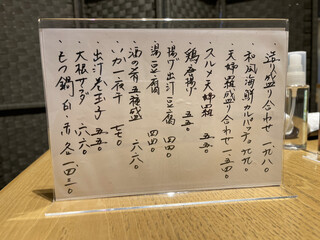 ・造り盛り合わせ 一、九八〇
・和風海鮮カルパッチョ 九九〇
・天婦羅盛り合わせ 一、五四〇
・スルメ天婦羅 五五〇
・鶏唐揚げ 五五〇
・揚げ出汁豆腐 四四〇
・湯豆腐 四四〇
・酒の肴五種盛 六六〇
・いか一夜干 七七〇
・出汁巻玉子 五五〇
・大根サラダ 六六〇
・もつ鍋 白・赤 各一、四三〇